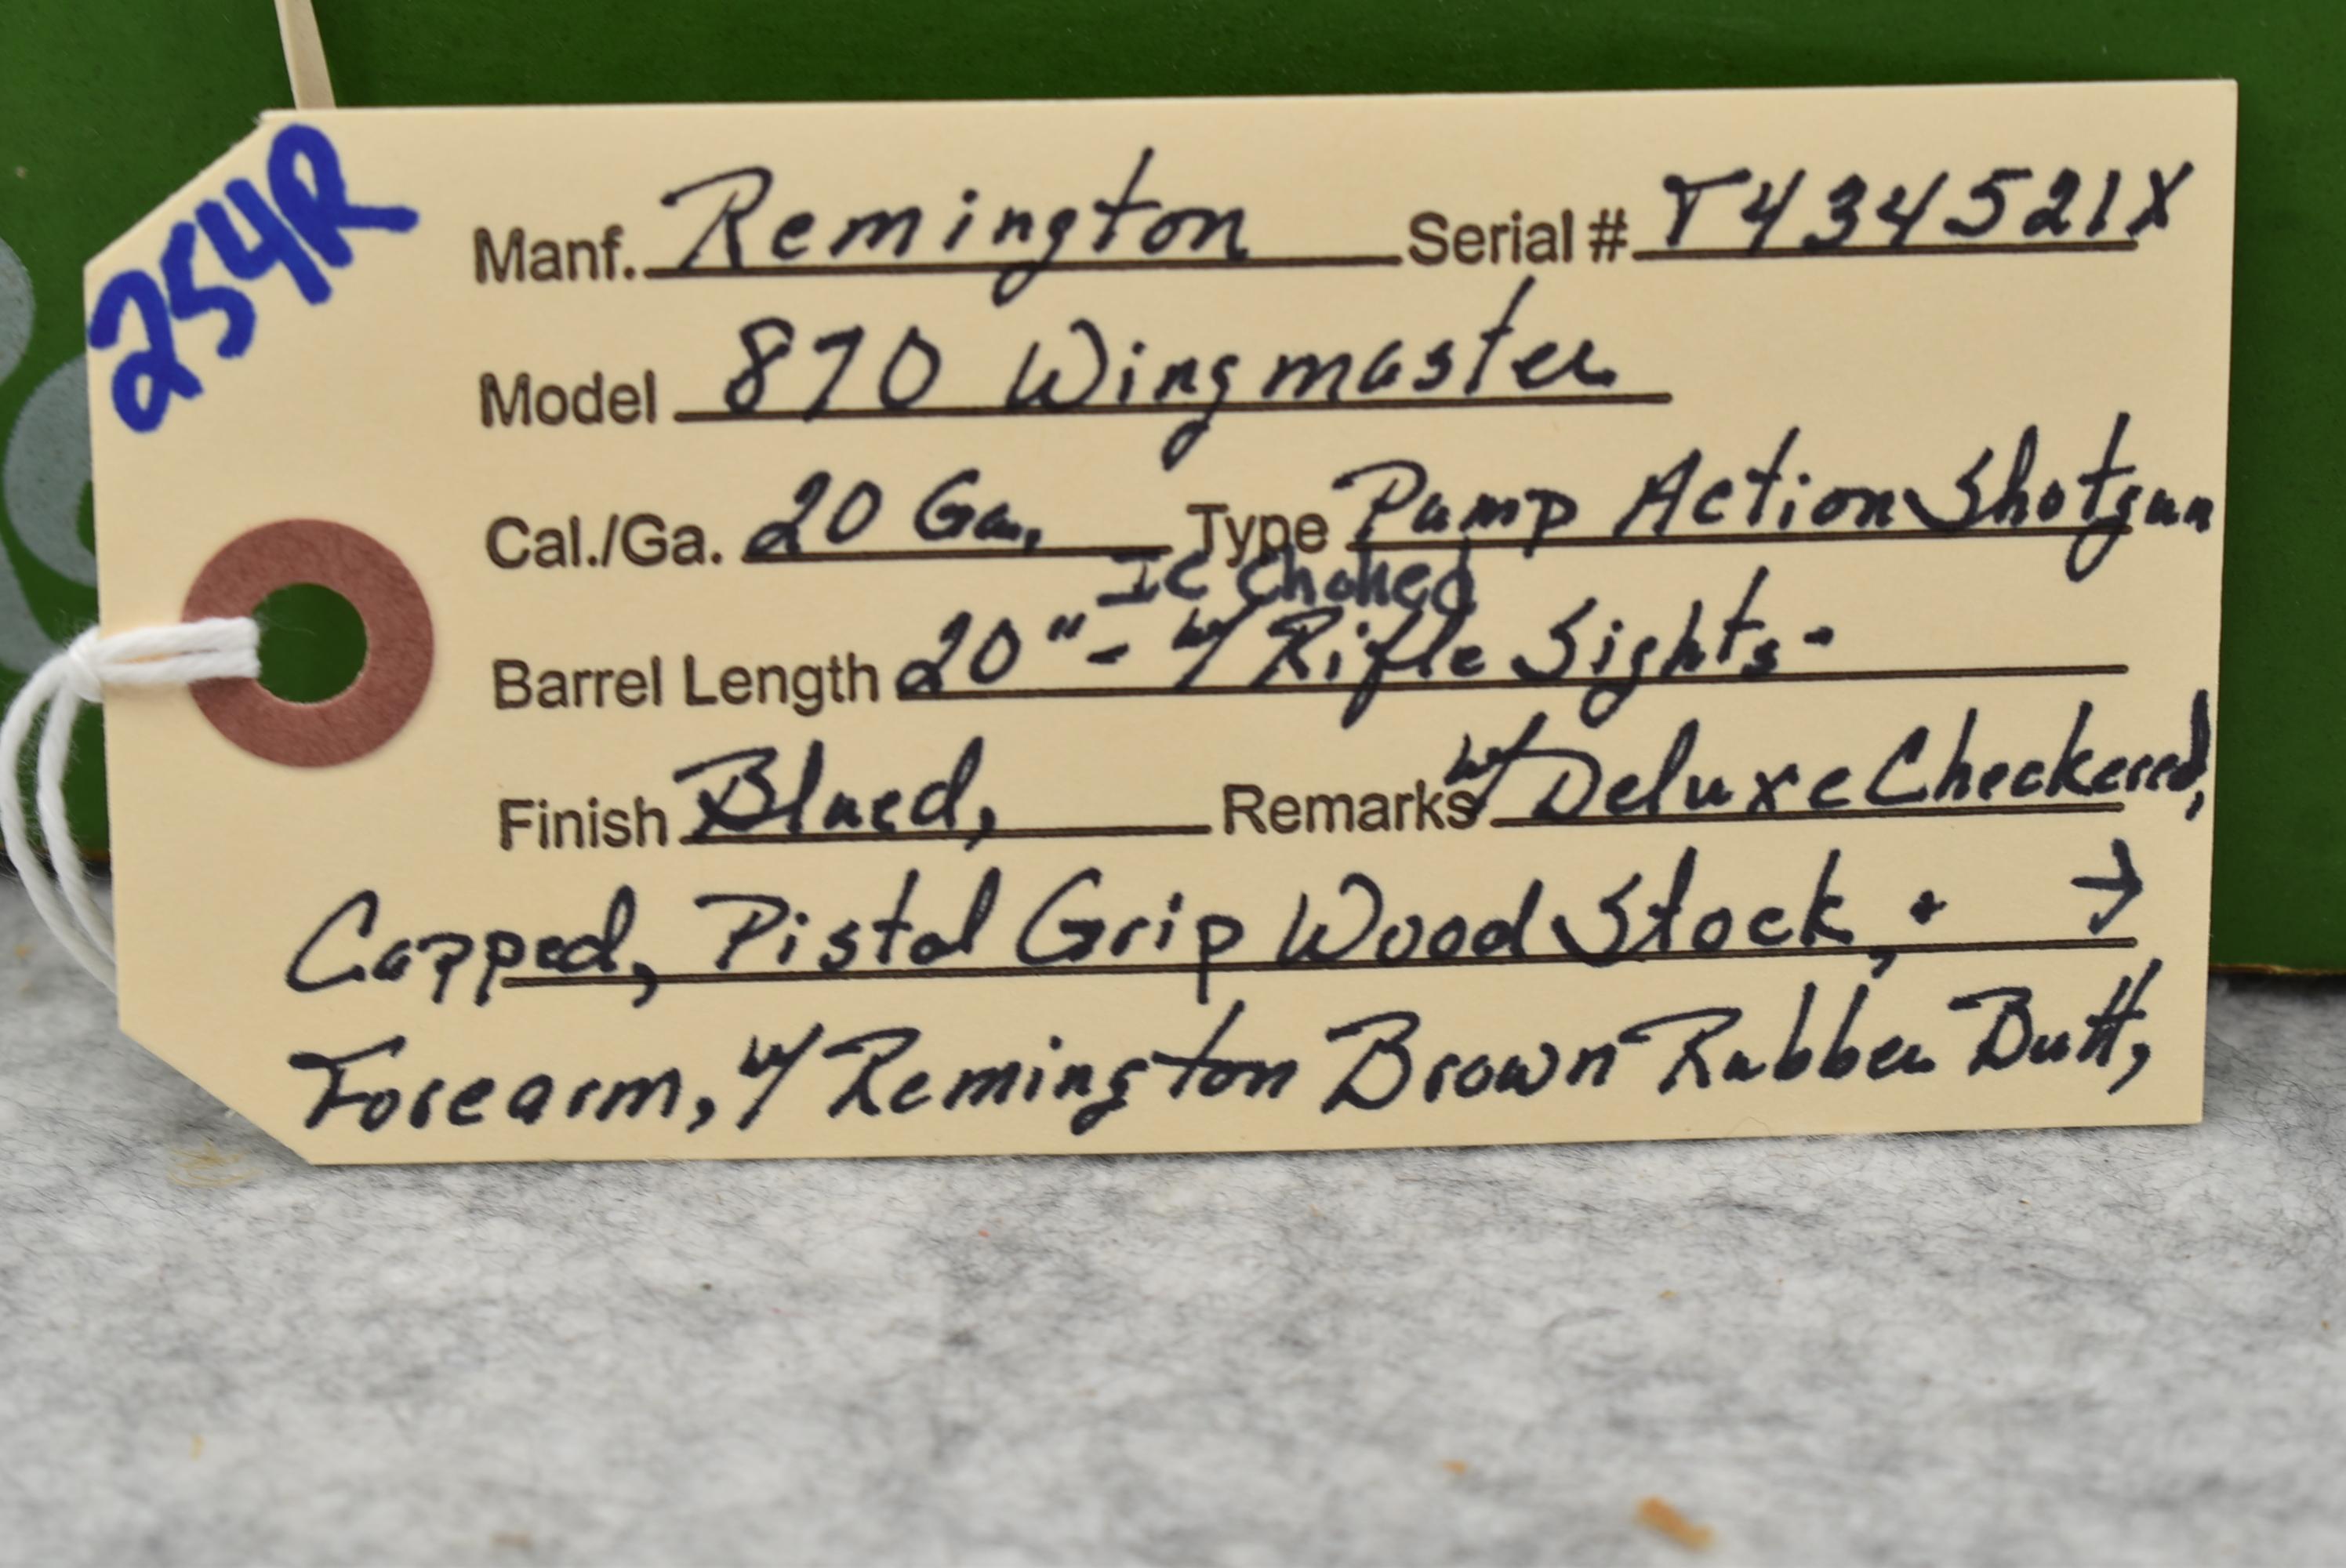 254R
Manf. Remington Serial # T434521X
Model 870 Wingmaster
Cal./Ga. 20 Ga. Type Pump Action Shotgun
IC Choked
Barrel Length 20" - w/ Rifle Sights -
Finish Blued, Remarks w/ Deluxe Checkered,
Capped, Pistol Grip Wood Stock, + →
Forearm, w/ Remington Brown Rubber Butt,